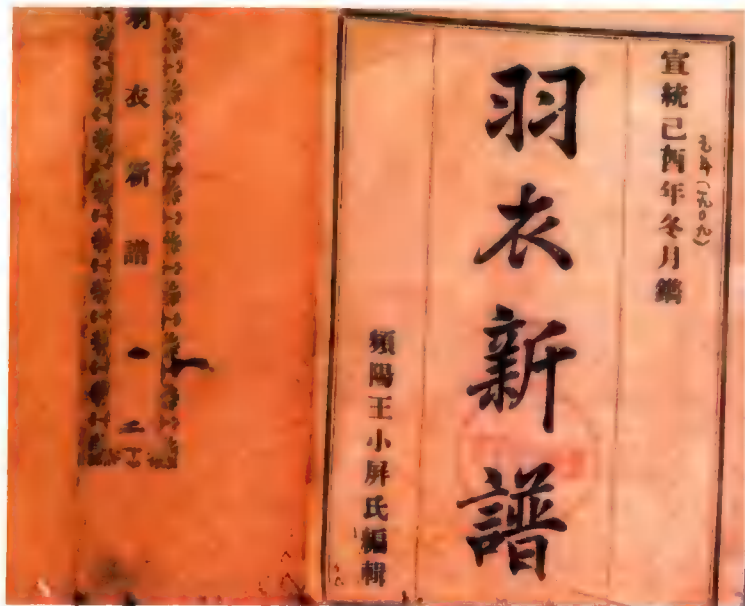 宣統己酉年冬月鐫
元年(一九〇九)
羽衣新譜
頻陽王小屏氏編輯
羽衣新譜